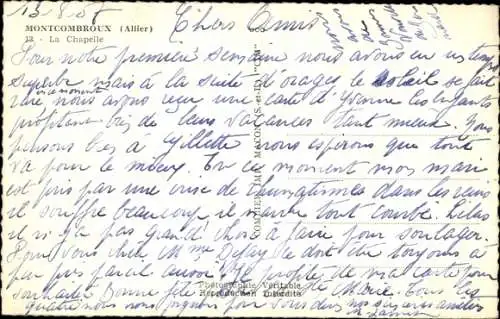 13-8-57
Chers Amis
MONTCOMBROUX (Allier)
13 - La Chapelle
Pour notre première semaine nous avons eu un temps
superbe mais à la suite d'orages le soleil se fait
rare en ce moment nous avons reçu une carte d'Yvonne les enfants
profitent bien de leurs vacances tant mieux. Vous
pensons bien à Gillette nous espérons que tout
va pour le mieux. En ce moment mon mari
est pris par une crise de rhumatismes dans les reins
il souffre beaucoup il marche tout courbé. Hélas
il n'y a pas grand chose à faire pour soulager.
Pour vous cher Mme ce doit être toujours à
peu près pareil aussi. Je profite de ma carte pour
souhaiter Bonne fête Ste Marie. Tous les
quatre nous nous joignons pour vous
COMBIER IMP. MACON (S.-et-L.) "CIM"
Photographie Véritable
Reproduction Interdite